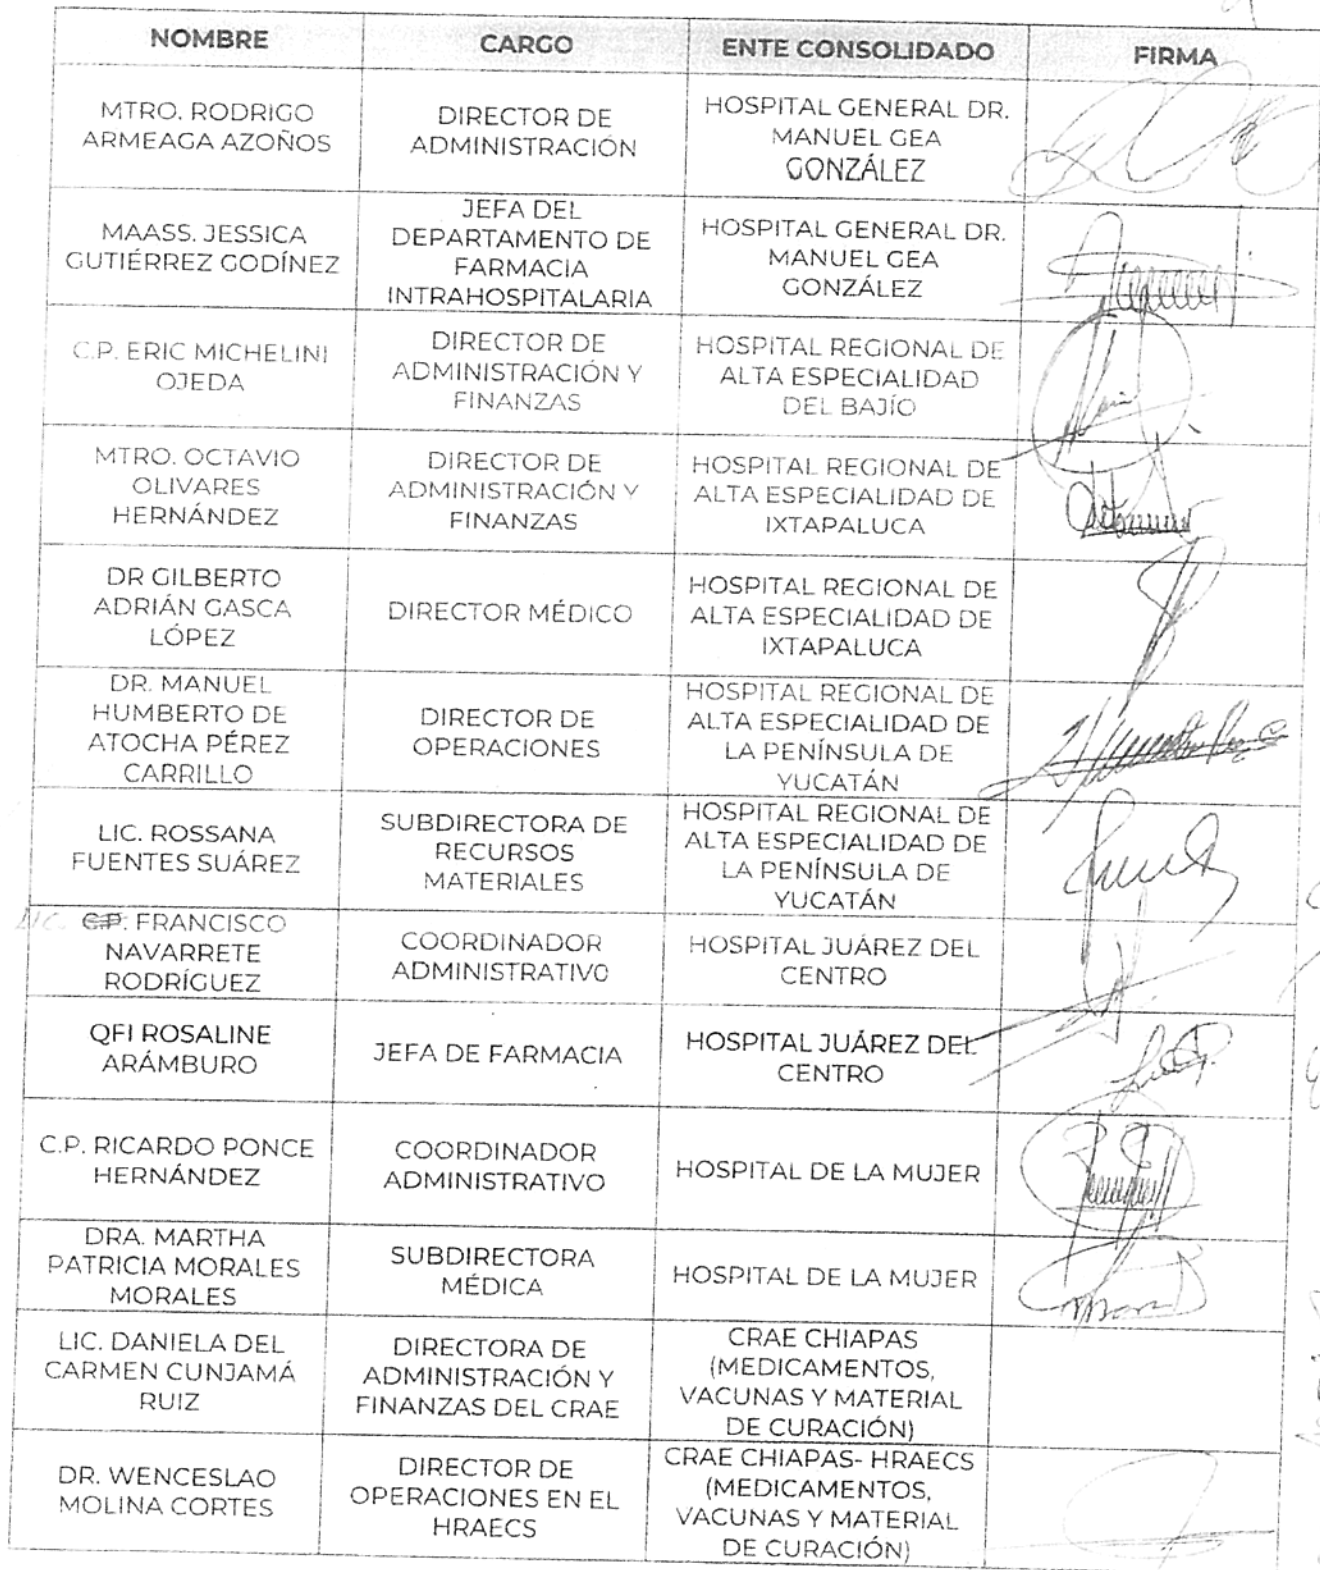 NOMBRE CARGO ENTE CONSOLIDADO FIRMA
MTRO. RODRIGO
ARMEAGA AZOÑOS
DIRECTOR DE
ADMINISTRACIÓN
HOSPITAL GENERAL DR.
MANUEL GEA
GONZÁLEZ
MAASS. JESSICA
GUTIÉRREZ GODÍNEZ
JEFA DEL
DEPARTAMENTO DE
FARMACIA
INTRAHOSPITALARIA
HOSPITAL GENERAL DR.
MANUEL GEA
GONZÁLEZ
C.P. ERIC MICHELINI
OJEDA
DIRECTOR DE
ADMINISTRACIÓN Y
FINANZAS
HOSPITAL REGIONAL DE
ALTA ESPECIALIDAD
DEL BAJÍO
MTRO. OCTAVIO
OLIVARES
HERNÁNDEZ
DIRECTOR DE
ADMINISTRACIÓN Y
FINANZAS
HOSPITAL REGIONAL DE
ALTA ESPECIALIDAD DE
IXTAPALUCA
DR GILBERTO
ADRIÁN GASCA
LÓPEZ
DIRECTOR MÉDICO
HOSPITAL REGIONAL DE
ALTA ESPECIALIDAD DE
IXTAPALUCA
DR. MANUEL
HUMBERTO DE
ATOCHA PÉREZ
CARRILLO
DIRECTOR DE
OPERACIONES
HOSPITAL REGIONAL DE
ALTA ESPECIALIDAD DE
LA PENÍNSULA DE
YUCATÁN
LIC. ROSSANA
FUENTES SUÁREZ
SUBDIRECTORA DE
RECURSOS
MATERIALES
HOSPITAL REGIONAL DE
ALTA ESPECIALIDAD DE
LA PENÍNSULA DE
YUCATÁN
LIC. C.P. FRANCISCO
NAVARRETE
RODRÍGUEZ
COORDINADOR
ADMINISTRATIVO
HOSPITAL JUÁREZ DEL
CENTRO
QFI ROSALINE
ARÁMBURO
JEFA DE FARMACIA
HOSPITAL JUÁREZ DEL
CENTRO
C.P. RICARDO PONCE
HERNÁNDEZ
COORDINADOR
ADMINISTRATIVO
HOSPITAL DE LA MUJER
DRA. MARTHA
PATRICIA MORALES
MORALES
SUBDIRECTORA
MÉDICA
HOSPITAL DE LA MUJER
LIC. DANIELA DEL
CARMEN CUNJAMÁ
RUIZ
DIRECTORA DE
ADMINISTRACIÓN Y
FINANZAS DEL CRAE
CRAE CHIAPAS
(MEDICAMENTOS,
VACUNAS Y MATERIAL
DE CURACIÓN)
DR. WENCESLAO
MOLINA CORTES
DIRECTOR DE
OPERACIONES EN EL
HRAECS
CRAE CHIAPAS- HRAECS
(MEDICAMENTOS,
VACUNAS Y MATERIAL
DE CURACIÓN)